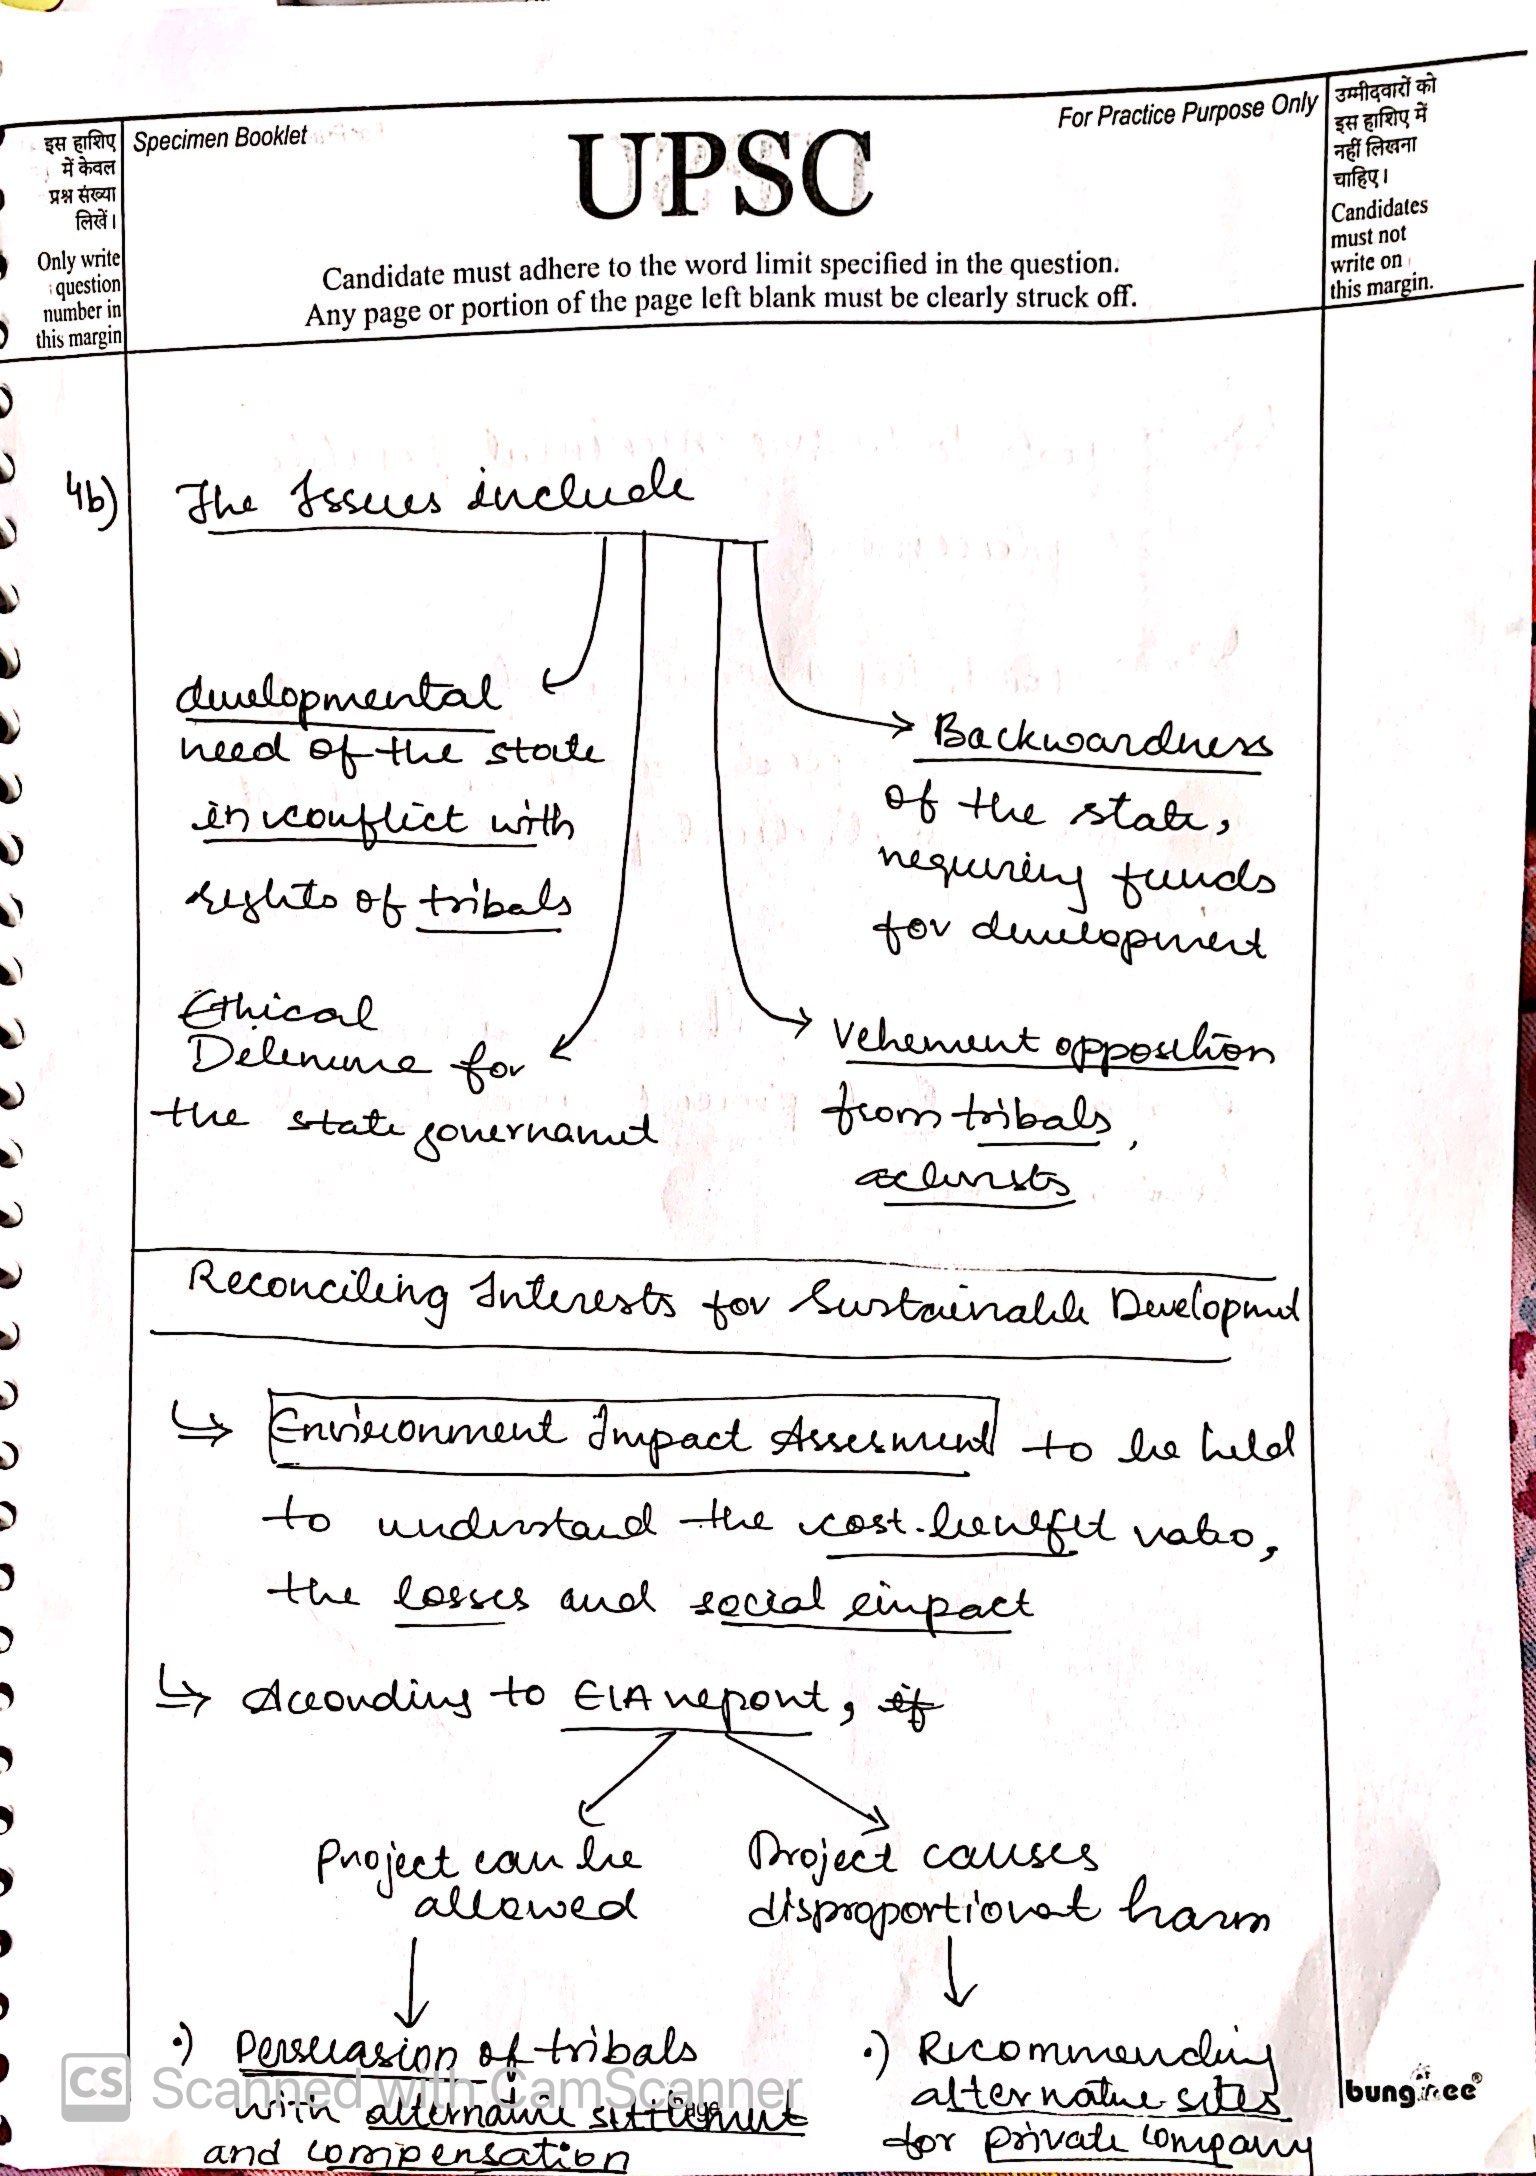 इस हाशिए
में केवल
प्रश्न संख्या
लिखें।
Only write
question
number in
this margin
Specimen Booklet
UPSC
For Practice Purpose Only
Candidate must adhere to the word limit specified in the question.
Any page or portion of the page left blank must be clearly struck off.
उम्मीदवारों को
इस हाशिए में
नहीं लिखना
चाहिए।
Candidates
must not
write on
this margin.
4b) The Issues include
developmental
need of the state
in conflict with
rights of tribals
Ethical
Delemma for
the state government
Backwardness
of the state,
requiring funds
for development
Vehement opposition
from tribals,
activists
Reconciling Interests for Sustainable Development
↳ Environment Impact Assesment to be held
to understand the cost-benefit ratio,
the losses and social impact
↳ According to EIA report, if
Project can be
allowed
Project causes
disproportionat harm
•) Persuasion of tribals
with alternative settlement
and compensation
•) Recommending
alternative sites
for private company
CS Scanned with CamScanner
bungree®